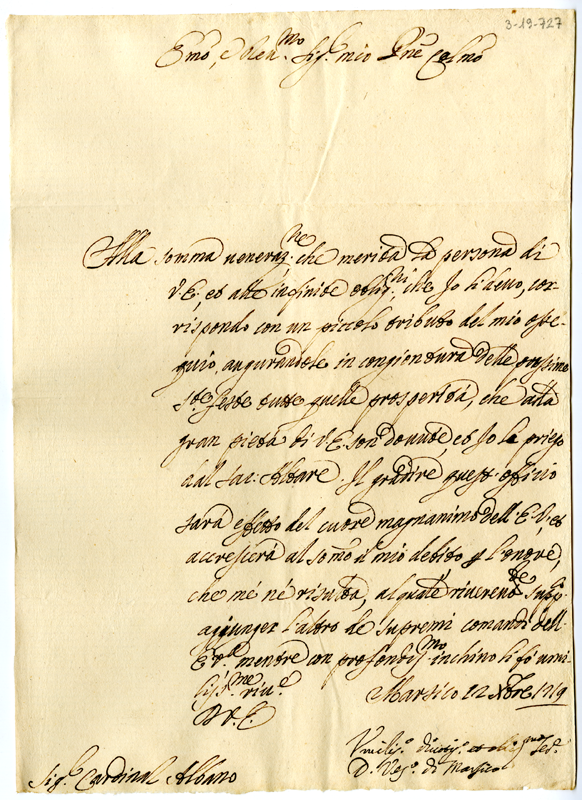 3-19-727
Emo, e Ren.mo Sig.r mio Pne Colmo
Alla somma veneraz.ne che merita la persona di
V.E., et alle infinite oblig.ni, che Io li devo, cor-
rispondo con un piccolo tributo del mio osse-
quio, augurandole in congiuntura delle prossime
S.te feste tutte quelle prosperità, che alla
gran pietà di V.E. son dovute, et Io le priego
dal Sac. Altare. Il gradire quest'offitio
sarà effetto del cuore magnanimo dell'E.V., et
accrescerà al somo il mio debito p l'onore,
che me ne risulta, al quale riveren.te suppl.
aggiunger l'altro de supremi comandi dell'
E.V. mentre con profondis.mo inchino li fò umi-
lis.me riv.e
D.V.E.
Marsico 12 Xbre 1719
Umilis.o divotis.o et oblig.mo Ser.
D. Ves.o di Marsico
Sig.r Cardinal Albano